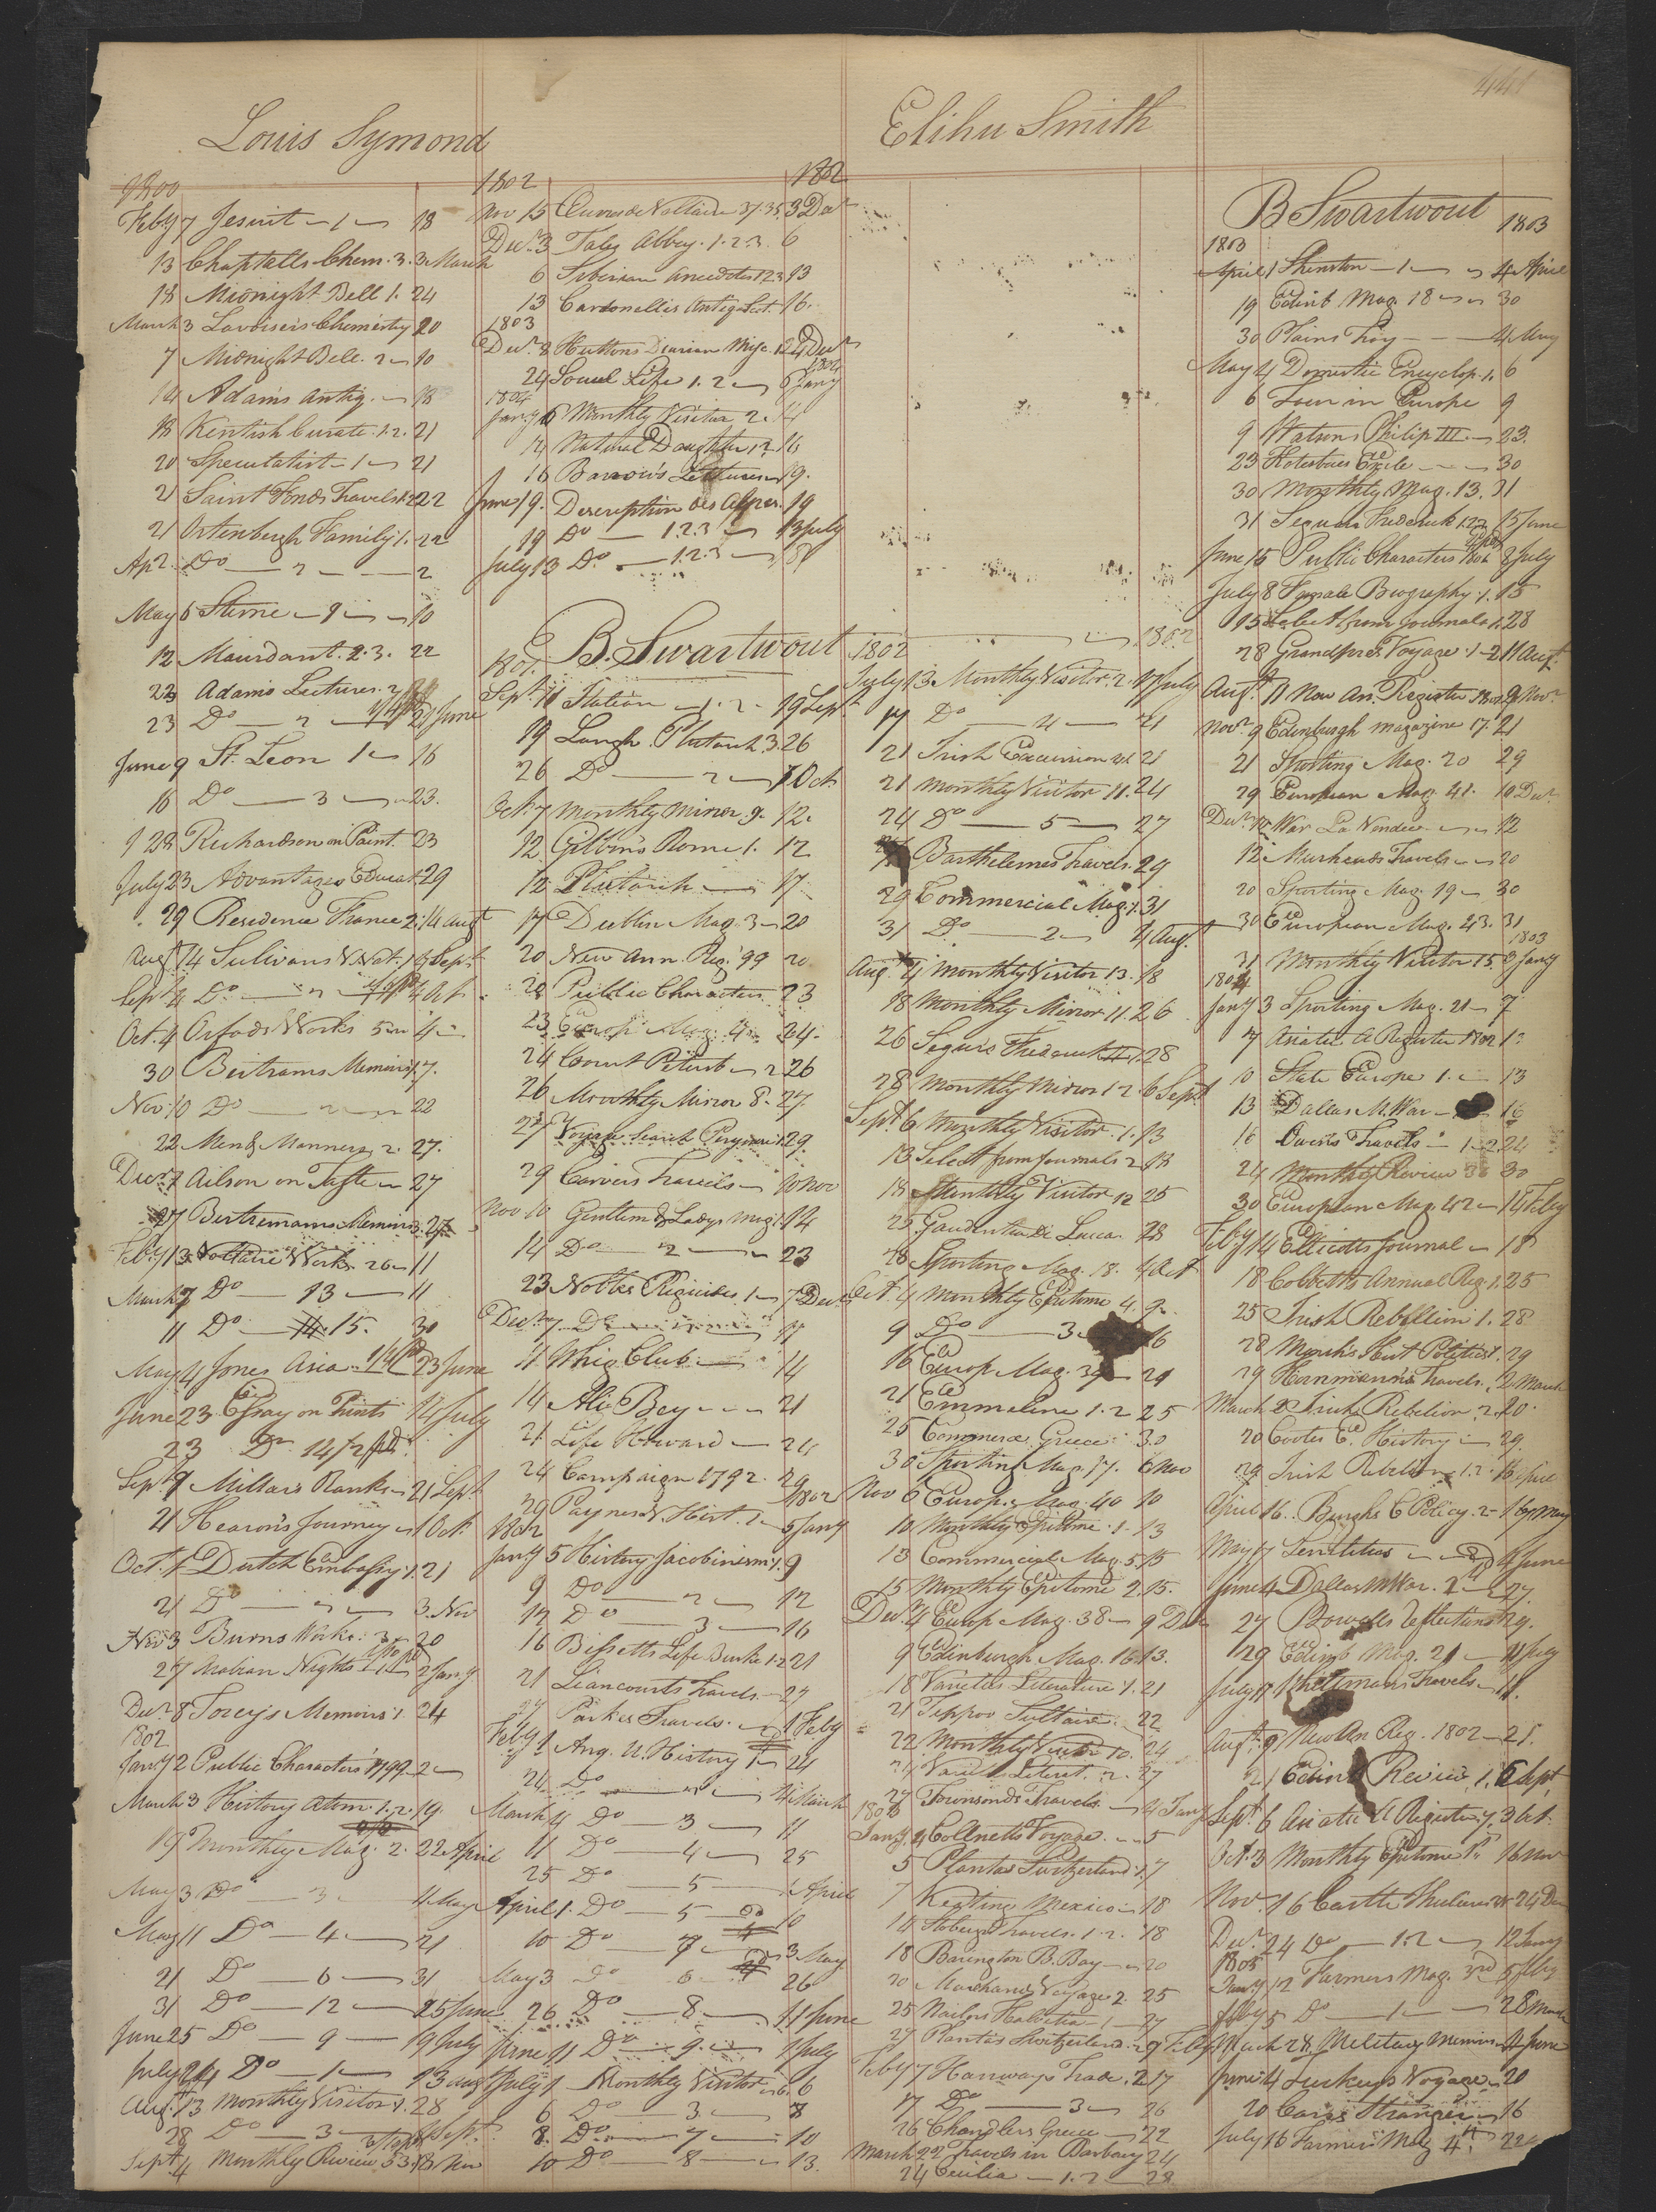 441
Louis Symond
1800
Feby 7 Jesuit - 1 - 18
13 Chaptalls Chem. 3. 3 March
18 Midnight Bell 1. 24
March 3 Lavoisiers Chemistry 20
7 Midnight Bell. 2 - 10
14 Adams Antiq. - 18
18 Kentish Curate. 1.2. 21
20 Speculatist - 1 - 21
21 Saint Fonds Travels 1.2 22
21 Ortenburgh Family 1. 22
Ap 2. Do - 2 - 2
May 5 Sterne - 9 - 10
12 Mourdant. 2.3. 22
22 Adams Lectures. 2
23 Do - 2 - 27 June
June 9 St. Leon 1 - 16
16 Do - 3 - 23.
28 Richardson on Paint. 23
July 23 Advantages Educat. 29
29 Residence France 2. 14 Augt
Augt 14 Sulivans V. Nat. 1 Sept
Sept 4 Do - 2 - 4 Oct.
Oct. 4 Orfords Works 5 - 4 -
30 Bertrams Memoirs 1. 7.
Nov 10 Do - 2 - 22
22 Men & Manners, 2. 27.
Decr 7 Alison on Taste - 27
27 Bertremans Memoirs 3. 27
Feby 13 Voltaire Works 26 - 11
March 7 Do - 13 - 11
11 Do - 15. 30
May 4 Jones Asia 23 June
June 23 Essay on Prints 14 July
23 Do 14/2 pd.
Sept 9 Millars Ranks - 21 Sept
21 Hearons Journey - 1 Oct.
Oct. 1 Dutch Embassy 1. 21
21 Do - 2 - 3. Nov
Nov 3 Burns Works. 3. 20
27 Arabian Nights 2 Jany
Decr 8 Torcys Memoirs 1. 24
1802
Jany 2 Public Characters 1799 - 2 -
March 3 History Atom. 1.2. 19.
19 Monthly Mag. 2. 22 April
May 3 Do - 3 - 11 May
May 11 Do - 4 - 21
21 Do - 6 - 31
31 Do - 12 - 25 June
June 25 Do - 9 - 19 July
July Do - 1 - 13 Aug
Aug. 13 Monthly Visitor 1. 28
28 Do - 3 - Sept.
Sept. 4 Monthly Review 33. 18 Nov
1802 1802
Nov 15 Oeuvres de Voltaire 37.35. 3 Decr
Decr. 3 Tales Abbey. 1.2.3. 6
6 Siberian Anecdotes 1.2.3 13
13 Cardonellis Antiq. Scot. 16.
1803
Decr. 8 Huttons Diarian Misc. 1.2 24 Decr
1804
24 Social Life 1. 2 - 6 Jany
1804
Jany 6 Monthly Visitor 2. 14
14 Natural Daughter 1.2 16
16 Barrow's Lectures - 19.
June 19. Description des Alpes. 19
19 Do - 1.2.3 - 13 July
July 13 Do. - 1.2.3 -
B. Swartwout
1801.
Sept. 11 Station - 1. 2. 19 Sept
19 Langh. Plutarch 3. 26
26 Do - 2 - 7 Oct.
Oct. 7 Monthly Mirror. 9. 12.
12 Gibbons Rome 1. 12
12 Plutarch - 17
17 Dublin Mag. 3 - 20
20 New Ann. Reg. '99 20
20 Public Characters. 23
23 Europ Mag. 4 24.
24 Court Petersb - 2 26
26 Monthly Mirror 8. 27.
27 Voyage Search Perouse 1. 29.
29 Carvers Travels - 10 Nov
Nov 10 Gentlem & Ladys Mag. 1. 14
14 Do - 2 - 23
23 Nobles Regicides. 1 - 7 Decr
Decr. 7. Do 11
11 Whig Club - 14
14 Ali Bey - 21
21 Life Howard - 24
24 Campaign 1792. 29
29 Paynes U. Hist. 1 - 5 Jany
1802
Jany 5 History Jacobinism 1. 9
9 Do - 2 - 12
12 Do - 3 - 16
16 Bissetts Life Burke 1.2 21
21 Liancourts Travels. - 27
27 Parkes Travels. - 1 Feby
Feby 1 Anc. U. History 1 - 24
24 Do - 2 - 4 March
March 4 Do - 3 - 11
11 Do - 4 - 25
25 Do - 5 - 1 April
April 1. Do - 5 - 10
10 Do - 7 - 3 May
May 3 Do - 6 - 26
26 Do - 8 - 11 June
June 11 Do - 9 - 1 July
July 1 Monthly Visitor - 6. 6
6 Do - 3 - 8
8. Do - 7 - 10
10 Do - 8 - 13.
Elihu Smith
1802 1802
July 13 Monthly Visitor. 2. 17 July
17 Do - 4 - 21
21 Irish Excursion 21
21 Monthly Visitor 11. 24
24 Do - 5 - 27
Barthelemes Travels. 29
29 Commercial Mag. 1. 31
31 Do - 2 - 4 Aug.
Aug. 4 Monthly Visitor 13. 18
18 Monthly Mirror 11. 26
26 Segurs Frederick 28
28 Monthly Mirror 12 6 Sept
Sept 6 Monthly Visitor. 1. 13
13 Select from Journals 2 18
18 Monthly Visitor 12 25
25 Gaudentia Di Lucca. 28
28 Sporting Mag. 18. 4 Oct
Oct. 4 Monthly Epitome 4. 9.
9 Do - 3 - 16
16 Europ. Mag. 39 - 21
21 Emmeline 1.2 25
25 Commerce Greece 30
30 Sporting Mag. 17. 6 Nov
Nov 6 Europ. Mag. 40 10
10 Monthly Epitome. 1. 13
13 Commercial Mag. 5. 15
15 Monthly Epitome 2. 15.
Decr. 4 Europ Mag. 38 - 9 Decr
9 Edinburgh Mag. 16. 13.
18 Varieties Literature 1. 21
21 Teppoo Sultaun. 22
22 Monthly Visitor 10. 24
24 Varieties Literat. 2. 27
27 Townsends Travels. - 4 Jany
1803
Jany. 4 Collnetts Voyage. - 5
5 Plantas Switzerland 1. 7
7 Keating Mexico - 18
14 Travels. 1. 2. 18
18 Barington B. Bay - 20
20 Marchand Voyages 2. 25
25 Nailors Helvetia - 1 - 27
27 Plantas Switzerland. 2 7 Feby
Feby 7 Hanways Trade. 2 17
17 Do - 3 - 26
26 Chandlers Greece - 22
March 22 Travels in Barbary 24
24 Cecilia - 1.2 - 28
B Swartwout
1803 1803
April 1 Shenston - 1 - 4 April
19 Edinb Mag. 18 - 30
30 Plains Troy - 4 May
May 4 Domestic Encyclop. 1. 6
6 Tour in Europe 9
9 Watsons Philip III. - 23.
23 Kotzebues Exile - 30
30 Monthly Mag. 13. 31
31 Segurs Frederick 1.2.3 15 June
June 15 Public Characters 8 July
July 8 Female Biography. 1. 15
15 Select from Journals 1. 28
28 Grandpres Voyage. 1 - 2 11 Augt.
Augt. 11 New An. Register 9 Novr.
Novr. 9 Edinburgh magazine 17. 21
21 Sporting Mag. 20 29
29 European Mag. 41. 10 Decr.
Decr. 10 War La Vendee - 12
12 Muirheads Travels - 20
20 Sporting Mag. 19 - 30
30 European Mag. 43. 31
1803
31 Monthly Visitor 15. 3 Jany
1804
Jany 3 Sporting Mag. 21 - 7
7 Asiatic A Register 1802
10 State Europe 1. - 13
13 Dallas M. War - 16
16 Owens Travels - 1.2 24
24 Monthly Review 36 30
30 European Mag. 42 - 14 Feby
Feby 14 Ellicotts Journal - 18
18 Cobbetts Annual Reg. 1. 25
25 Irish Rebellion 1. 28
28 Marsh's Hist Politics 1. 29
29 Hornmann's Travels. 2 March
March 2 Irish Rebelion. 2. 20
20 Cootes E. History - 29.
29 Irish Rebelion 1.2 16 April
April 16. Burghs C Policy. 2 - May
May 17 - 4 June
June 4 Dallas M War. 2 - 27.
27 Bowdlers Reflections 29.
29 Edinb Mag. 21 - 11 July
July 11 Travels - 11.
Augt. 9 New An Reg. 1802 - 21.
21 Edinb Review 1. 6 Sept
Sept. 6 Asiatic A Register 7. 3 Oct.
Oct. 3 Monthly Epitome 16 Nov
Nov. 16 Castle 24 Decr
Decr. 24 Do - 1.2 - 12 Jany
1805
Jany 12 Farmers Mag. 3rd 5 Feby
Feby 5 Do - 1 - 28 March
March 28 Military Memoirs - 4 June
June 4 Tuckeys Voyage - 20
20 Carrs Stranger - 16
July 16 Farmers Mag 4th 22